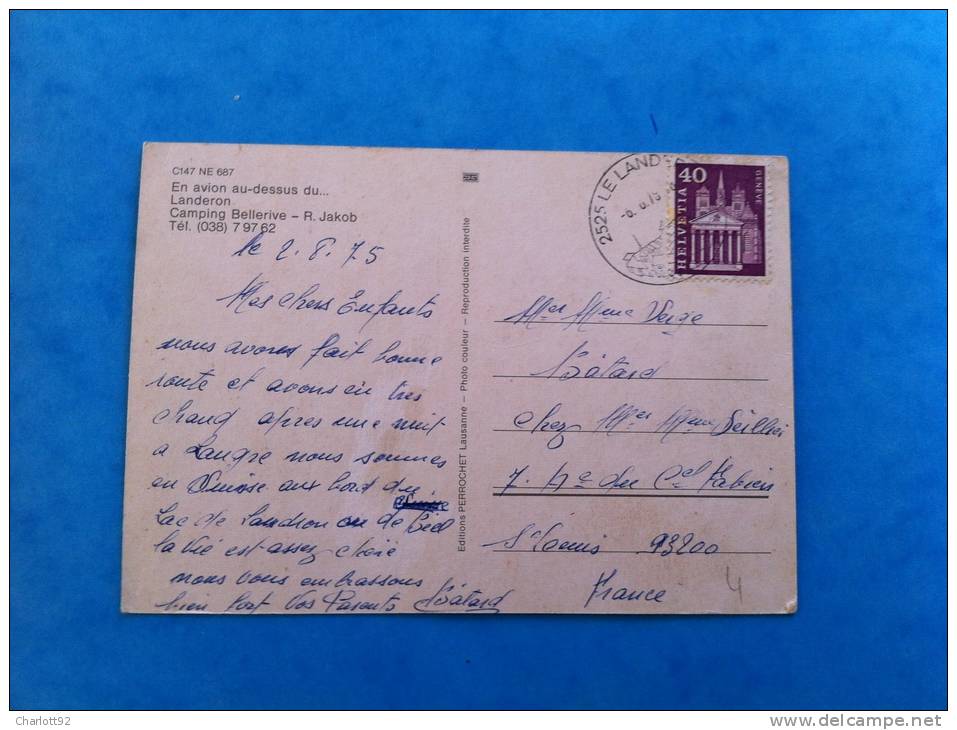 C147 NE 687
En avion au-dessus du...
Landeron
Camping Bellerive – R. Jakob
Tél. (038) 7 97 62
le 2.8.75
Mes chers Enfants
nous avons fait bonne
route et avons eu tres
chaud apres une nuit
a Langre nous sommes
en Suisse aux bord du
Lac de Landron ou de Biel
la vie est assez chère
nous vous embrassons
bien fort Vos Parents Bâtard
Editions PERROCHET Lausanne – Photo couleur – Reproduction interdite
2525 LE LANDE
40
HELVETIA
GENÈVE
Mer Mme Verge
Bâtard
chez Mer Mme
7. Ae du Cel Fabien
St Denis 93200
France
4
Charlott92
http://www.delcampe.net